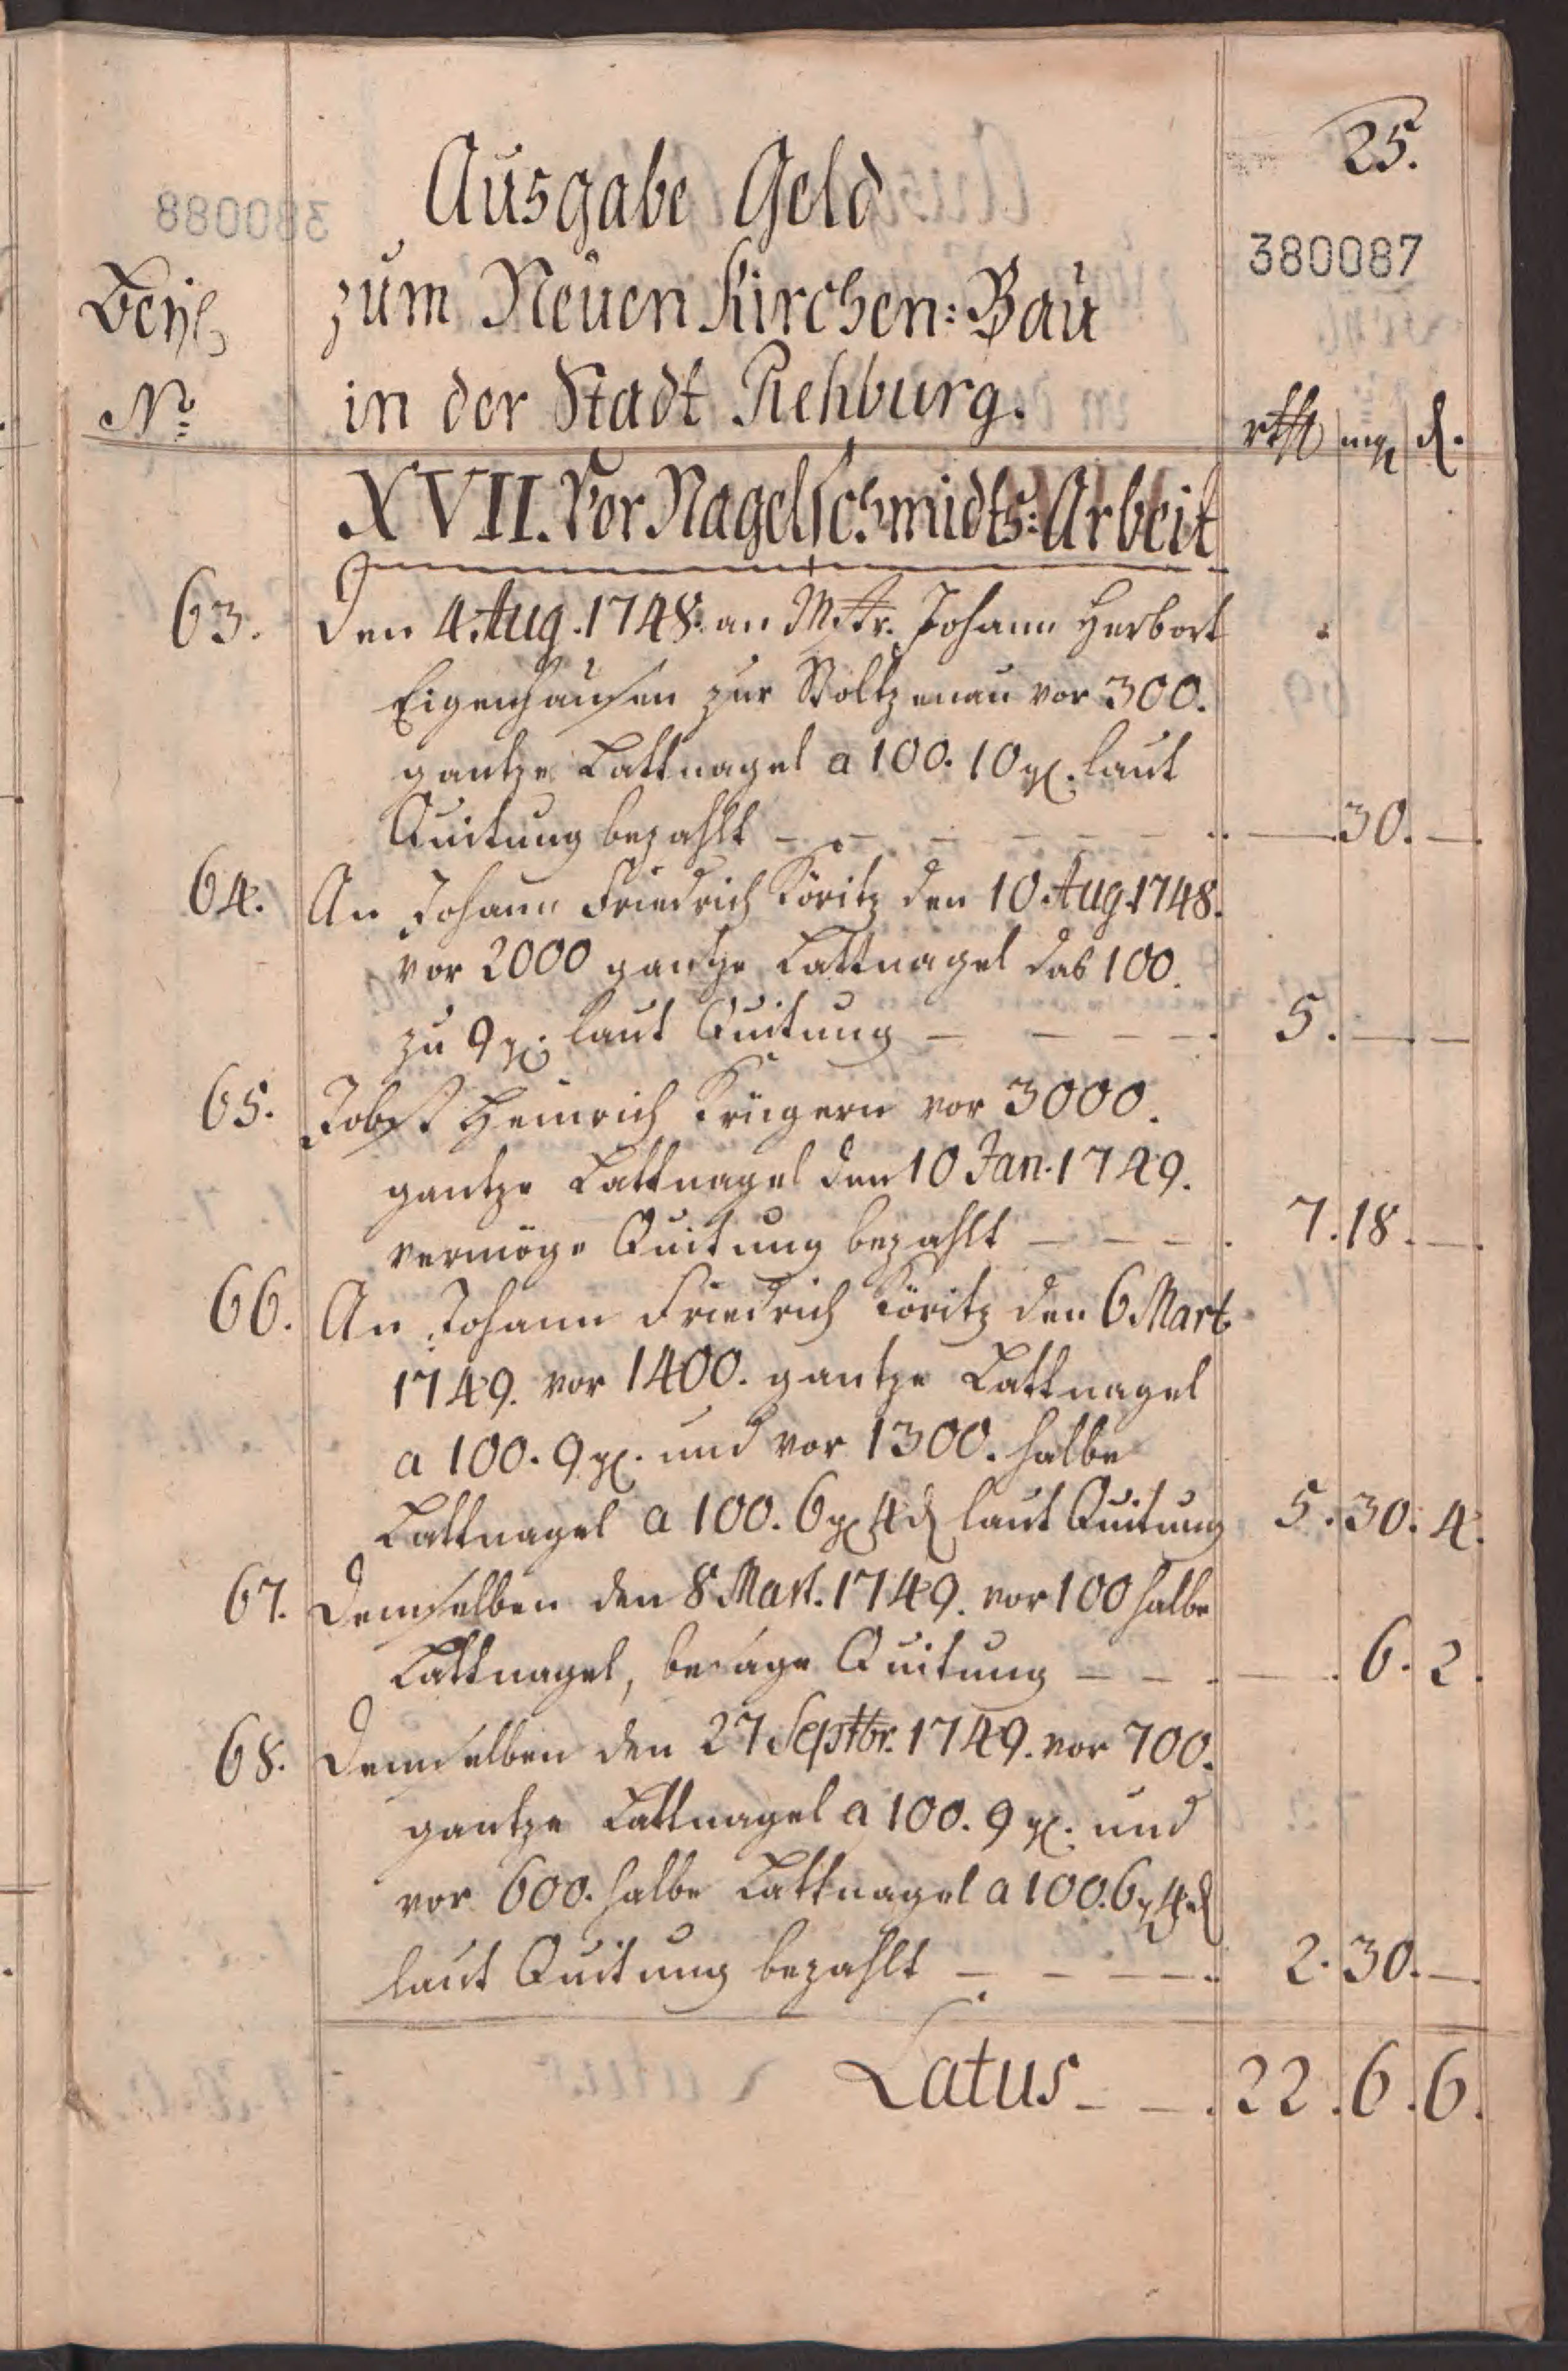 25.
Ausgabe Geld
380087
Beyl
zum Neuen Kirchen: Bau
No
in der Stadt Rehburg.
rthl mg d.
XVII. Vor Nagelschmidts: Arbeit
63. Den 4. Aug. 1748. an Mstr. Johann Herbort
Eigenhausen zur Stoltzenau vor 300.
gantze Lattnagel a 100. 10 gl. laut
Quitung bezahlt - - - - - - — 30. —
64. An Johann Friedrich Köritz den 10 Aug. 1748.
vor 2000 gantze Lattnagel das 100.
zu 9 gl. laut Quitung - - - - 5. — —
65. Jobst Heinrich Krügern vor 3000.
gantze Lattnagel den 10 Jan. 1749.
vermöge Quitung bezahlt - - - 7. 18. —
66. An Johann Friedrich Köritz den 6 Mart
1749. vor 1400. gantze Lattnagel
a 100. 9 gl. und vor 1300. halbe
Lattnagel a 100. 6 gl 4 d laut Quitung 5. 30. 4.
67. Demselben den 8 Mart. 1749. vor 100 halbe
Lattnagel, besage Quitung - - — 6. 2.
68. Demselben den 27 Septbr. 1749. vor 700.
gantze Lattnagel a 100. 9 gl. und
vor 600. halbe Lattnagel a 100. 6 gl 4 d
laut Quitung bezahlt - - - - 2. 30. —
Latus - - 22. 6. 6.